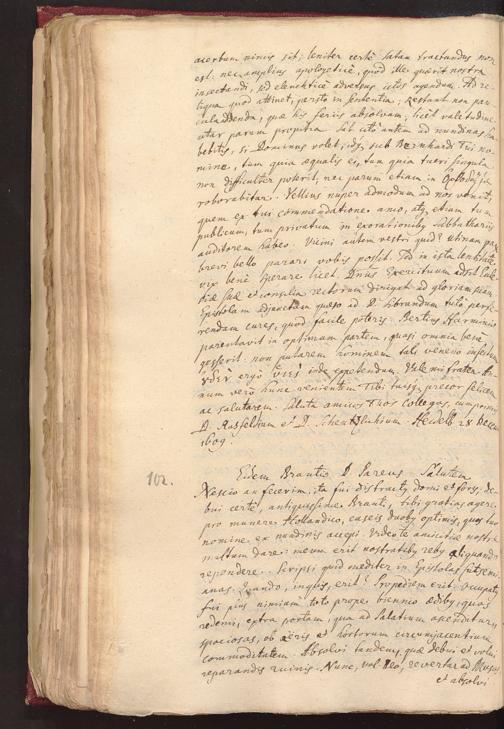 acerbum nimis sit; leniter certè Satan tractandus non
est: nec amplius apologeticè, quod ille quærit nostra
insectandi, sed elenkticè adversus istos agendum. Ad re-
liqua quod attinet, persto in sententia; Restant non pau-
cula addenda, quæ his feriis absolvam, licet valetudine
utar parum prospera. Sat citò autem ad nundinas ha-
bebitis, si Dominus volet, idq; sub Bernhardi Tui no-
mine, tum quia æqualis ei, tum quia tueri singula
non difficulter poterit, nec parum etiam in
roborabitur. Vellius nuper admodum ad nos venit,
quem ex tui commendatione amo, atq; etiam tum
publicum, tum privatum in exercitationib9 sabbathariis
auditorem habeo. Vicini autem vestri quid? utinam pax
brevi bello parari vobis possit. Sed in ista lentitudine
vix benè sperare licet. Dnus Exercituum adsit Eccle-
siæ suæ et consilia rectorum dirigat ad gloriam suam.
Epistolam adjunctam quæso ad D. Sibrandum tutò perfe-
rendam cures, quod facile poteris. Bertius Harminio
parentavit in optimam partem, quasi omnia benè
gesserit: non putarem hominem tali veneno infectum.
ergò inde expetendum. Vale mi frater. An-
num verò hunc venientem Tibi tuisq; precor felicem
ac salutarem. Saluta amicos Tuos Collegas, cumprimis
D. Rosfeldum et D. Schantzlinium. Heidelb 28 Decem
1609.
102. Eidem Brantio D. Pareus Salutem
Nescio an fecerim, ita fui distractus domi et foris, de-
bui certè, antiquissime Branti, tibi gratias agere
pro munere Hollandico, caseis duob9 optimis, quos tuo
nomine ex nundinis accepi. Video te amicitiæ nostræ
multum dare: meum erit nostratib9 reb9 aliquando
respondere. Scripsi quid mediter in Epistolas Stateni-
anas. Quando, inquis, erit? Propediem erit. Occupatus
fui plus nimium toto prope biennio ædib9, quas
redemi, extra portam, qua ad Palatium ascenditur
spaciosas, ob aëris et hortorum circumjacentium
commoditatem. Absolvi tandem, quæ debui et volui
reparandis ruinis. Nunc, vol. Deo, revertar ad Musas,
et absolvi